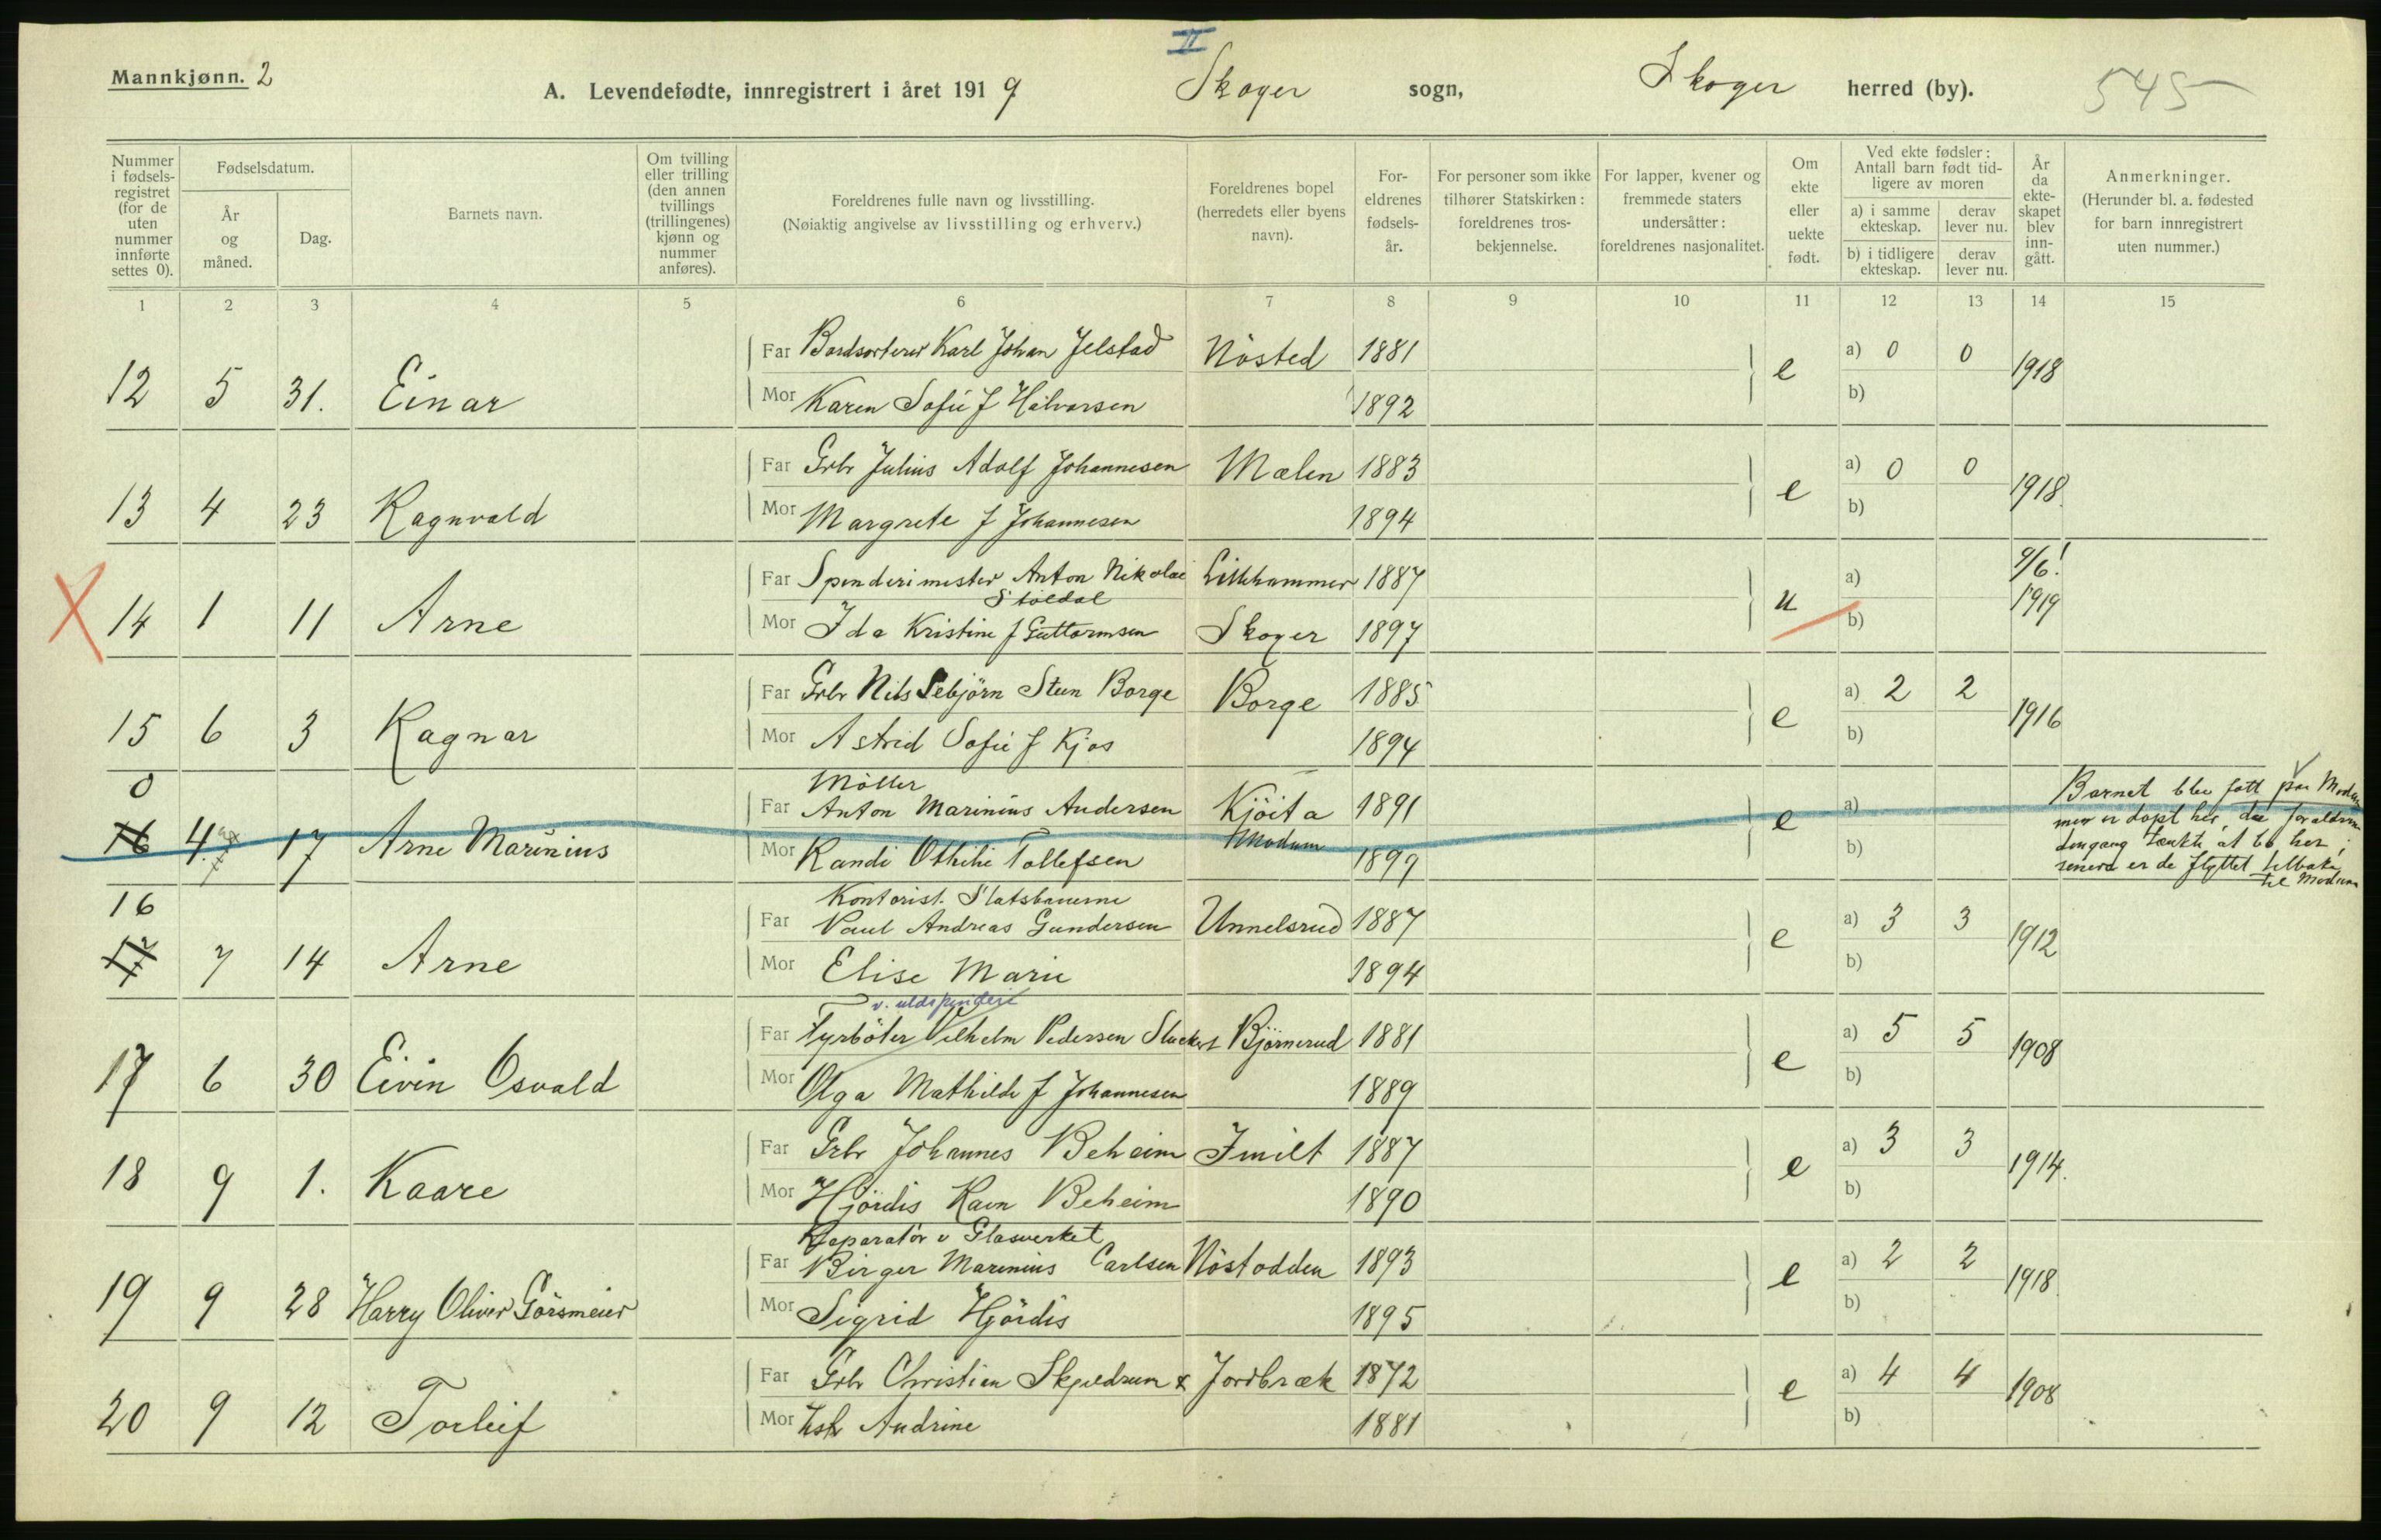 II
Mannkjønn. 2
A. Levendefødte, innregistrert i året 1919 Skoger sogn, Skoger herred (by). 545
Nummer i fødsels-registret (for de uten nummer innførte settes 0).
Fødselsdatum.
År og måned.
Dag.
Barnets navn.
Om tvilling eller trilling (den annen tvillings (trillingenes) kjønn og nummer anføres).
Foreldrenes fulle navn og livsstilling.
(Nøiaktig angivelse av livsstilling og erhverv.)
Foreldrenes bopel (herredets eller byens navn).
For-eldrenes fødsels-år.
For personer som ikke tilhører Statskirken: foreldrenes tros-bekjennelse.
For lapper, kvener og fremmede staters undersåtter: foreldrenes nasjonalitet.
Om ekte eller uekte født.
Ved ekte fødsler: Antall barn født tid-ligere av moren
a) i samme ekteskap.
derav lever nu.
b) i tidligere ekteskap.
derav lever nu.
År da ekte-skapet blev inn-gått.
Anmerkninger.
(Herunder bl. a. fødested for barn innregistrert uten nummer.)
1 2 3 4 5 6 7 8 9 10 11 12 13 14 15
Far Bordsorterer Karl Johan Jelstad Nösted 1881 a) 0 0
12 5 31. Einar e 1918
Mor Karen Sofie f Halvorsen 1892 b)
Far Grbr Julius Adolf Johannesen Mælen 1883 a) 0 0
13 4 23 Ragnvald e 1918.
Mor Margrete f Johannesen 1894 b)
Far Spinderimester Anton Nikolai Lillehammer 1887 a) 9/6!
Stöldal
X 14 1 11 Arne u 1919
Mor Ida Kristine f Guttormsen Skoger 1897 b)
Far Grbr Nils Sebjörn Steen Borge Borge 1885 a) 2 2
15 6 3 Ragnar e 1916
Mor Astrid Sofie f Kjos 1894 b)
0 Möller
Far Anton Marinius Andersen Kjöita 1891 a)
16 4 17 Arne Marinius Modum e
Mor Randi Othilie Tollefsen 1899 b)
Barnet blev fött paa Modum
men er döpt her, da forældrene
dengang tænkte at bo her;
senere er de flyttet tilbake
til Modum
16 Kontorist. Statsbanerne
Far Paul Andreas Gundersen Unnelsrud 1887 a) 3 3
17 7 14 Arne e 1912
Mor Elise Marie 1894 b)
v. uldspinderi
Far Fyrböter Vilhelm Pedersen Stuckert Björnerud 1881 a) 5 5
17 6 30 Eivin Osvald e 1908
Mor Olga Mathilde f Johannesen 1889 b)
Far Grbr Johannes Beheim Smilt 1887 a) 3 3
18 9 1. Kaare e 1914.
Mor Hjördis Ravn Beheim 1890 b)
Reparatör v Glasverket
Far Birger Marinius Carlsen Nöstodden 1893 a) 2 2
19 9 28 Harry Oliver Görsmeier e 1918
Mor Sigrid Hjördis 1895 b)
Far Grbr Christian Skjeldrum & Jordbræk 1872 a) 4 4
20 9 12 Torleif e 1908
Mor Hstr Andrine 1881 b)